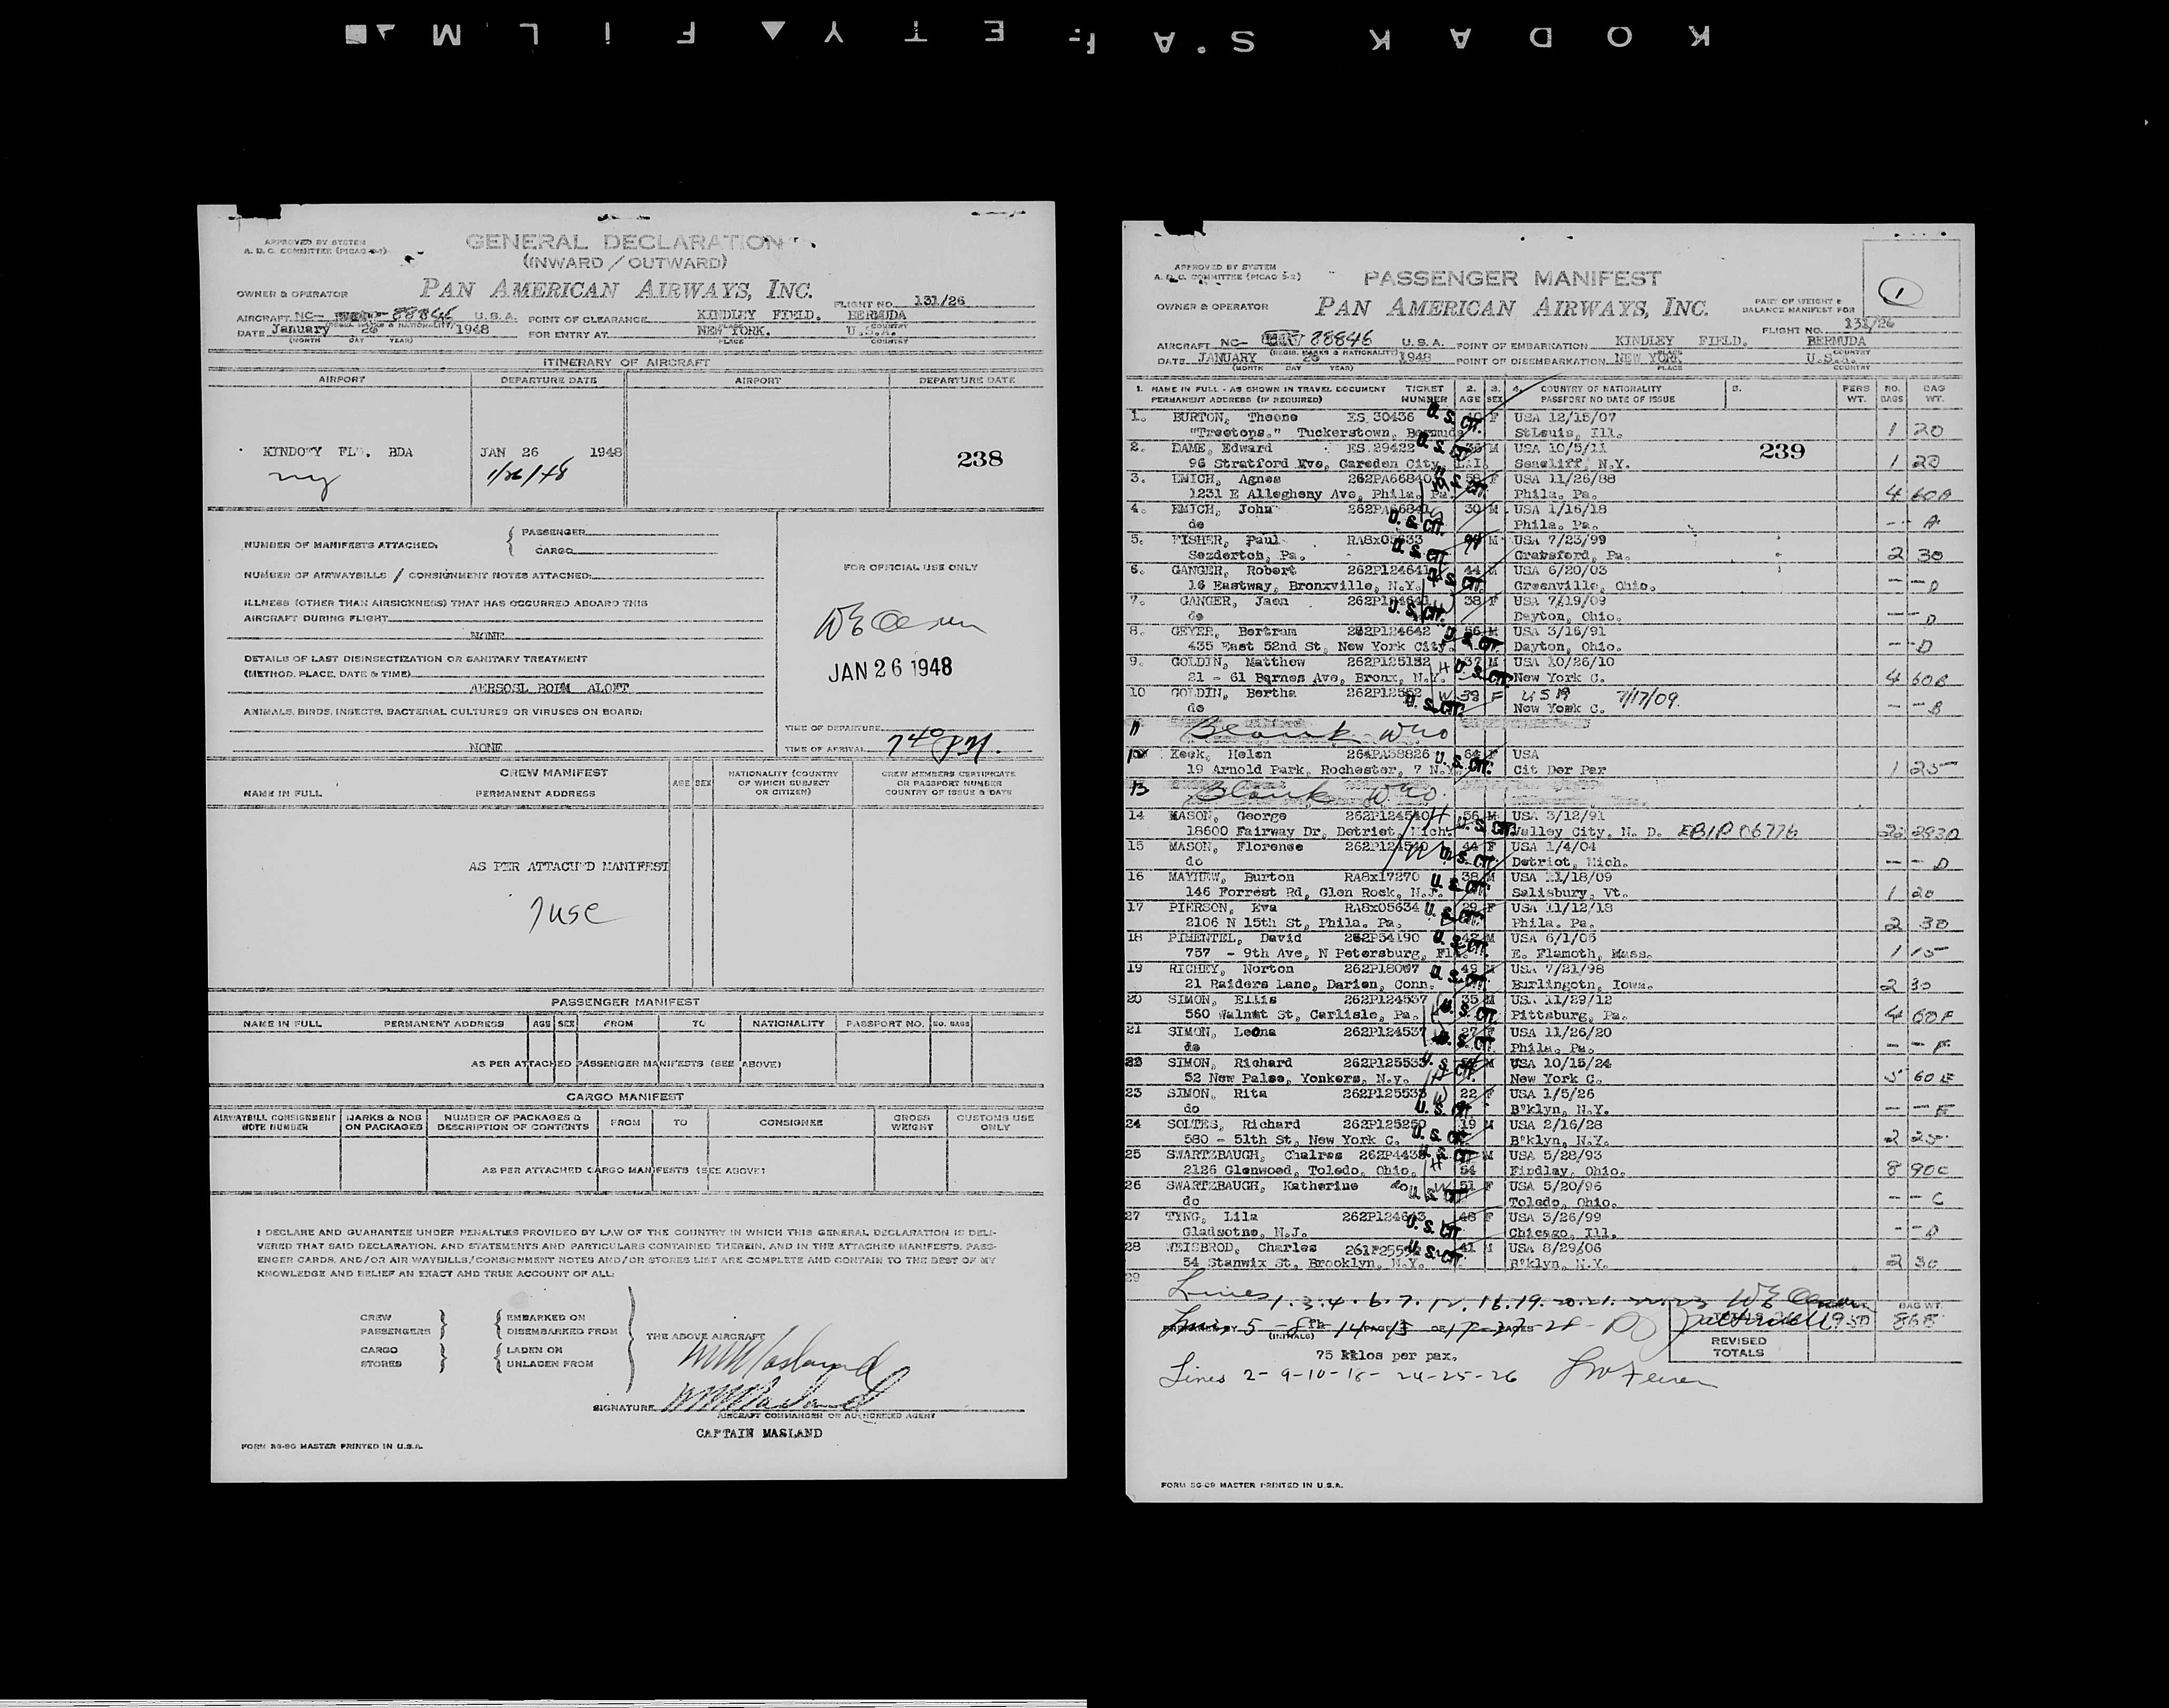 KODAK SAFETY FILM
APPROVED BY SYSTEM
A. D. C. COMMITTEE (PICAO
GENERAL DECLARATION
(INWARD / OUTWARD)
OWNER & OPERATOR PAN AMERICAN AIRWAYS, INC. FLIGHT NO. 131/26
AIRCRAFT NC- 88846 U.S.A. POINT OF CLEARANCE KINDLEY FIELD. BERMUDA
DATE January 26 1948 FOR ENTRY AT NEW YORK. U.S.A.
(MONTH DAY YEAR) PLACE COUNTRY
ITINERARY OF AIRCRAFT
AIRPORT DEPARTURE DATE AIRPORT DEPARTURE DATE
BDA JAN 26 1948 238
ny 1/26/48
NUMBER OF MANIFESTS ATTACHED: PASSENGER
CARGO
NUMBER OF AIRWAYBILLS / CONSIGNMENT NOTES ATTACHED:
FOR OFFICIAL USE ONLY
ILLNESS (OTHER THAN AIRSICKNESS) THAT HAS OCCURRED ABOARD THIS
AIRCRAFT DURING FLIGHT
NONE
DETAILS OF LAST DISINSECTIZATION OR SANITARY TREATMENT
(METHOD, PLACE, DATE & TIME)
JAN 26 1948
ALOFT
ANIMALS, BIRDS, INSECTS, BACTERIAL CULTURES OR VIRUSES ON BOARD:
NONE
TIME OF DEPARTURE
TIME OF ARRIVAL 740 PM.
CREW MANIFEST AGE SEX NATIONALITY (COUNTRY OF WHICH SUBJECT OR CITIZEN) CREW MEMBERS CERTIFICATE OR PASSPORT NUMBER COUNTRY OF ISSUE & DATE
NAME IN FULL PERMANENT ADDRESS
AS PER ATTACH'D MANIFEST
PASSENGER MANIFEST
NAME IN FULL PERMANENT ADDRESS AGE SEX FROM TO NATIONALITY PASSPORT NO. NO. BAGS
AS PER ATTACHED PASSENGER MANIFESTS (SEE ABOVE)
CARGO MANIFEST
AIRWAYBILL CONSIGNMENT NOTE NUMBER MARKS & NOS ON PACKAGES NUMBER OF PACKAGES & DESCRIPTION OF CONTENTS FROM TO CONSIGNEE GROSS WEIGHT CUSTOMS USE ONLY
AS PER ATTACHED CARGO MANIFESTS (SEE ABOVE)
I DECLARE AND GUARANTEE UNDER PENALTIES PROVIDED BY LAW OF THE COUNTRY IN WHICH THIS GENERAL DECLARATION IS DELI-
VERED THAT SAID DECLARATION, AND STATEMENTS AND PARTICULARS CONTAINED THEREIN, AND IN THE ATTACHED MANIFESTS, PASS-
ENGER CARDS, AND/OR AIR WAYBILLS/CONSIGNMENT NOTES AND/OR STORES LIST ARE COMPLETE AND CONTAIN TO THE BEST OF MY
KNOWLEDGE AND BELIEF AN EXACT AND TRUE ACCOUNT OF ALL:
CREW EMBARKED ON
PASSENGERS DISEMBARKED FROM THE ABOVE AIRCRAFT
CARGO LADEN ON
STORES UNLADEN FROM
SIGNATURE
AIRCRAFT COMMANDER OR AUTHORIZED AGENT
CAPTAIN MASLAND
FORM 86-96 MASTER PRINTED IN U.S.A.
APPROVED BY SYSTEM
A. D. C. COMMITTEE (PICAO 5-2)
PASSENGER MANIFEST
1
OWNER & OPERATOR PAN AMERICAN AIRWAYS, INC. PART OF WEIGHT & BALANCE MANIFEST FOR
FLIGHT NO. 131/26
AIRCRAFT NC- 88846 U.S.A. POINT OF EMBARKATION KINDLEY FIELD. BERMUDA
DATE JANUARY 26 1948 POINT OF DISEMBARKATION NEW YORK. U.S.A.
(MONTH DAY YEAR) PLACE COUNTRY
1. NAME IN FULL - AS SHOWN IN TRAVEL DOCUMENT TICKET 2. 3. 4. COUNTRY OF NATIONALITY 5. PERS NO. BAG
PERMANENT ADDRESS (IF REQUIRED) NUMBER AGE SEX PASSPORT NO DATE OF ISSUE WT. BAGS WT.
1. BURTON, Theone ES 30436 U.S. CIT. F USA 12/15/07
"Treetops." Tuckerstown, Bermuda StLouis, Ill. 1 20
2. DAME, Edward ES 29422 U.S. CIT. 36 M USA 10/5/11 239
96 Stratford Eve, Gareden City, L.I. Seacliff, N.Y. 1 20
3. EMICH, Agnes 262PA66840 58 F USA 11/26/88
1231 E Allegheny Ave, Phila. Pa. Phila. Pa. 4 60A
4. EMICH, John 262PA66841 30 M USA 1/16/18
do U.S. CIT. Phila. Pa. -- A
5. FISHER, Paul RA8x05633 M USA 7/23/99
Sezdertch, Pa. U.S. CIT. Crawsford, Pa. 2 30
6. GANGER, Robert 262P124641 44 M USA 6/20/03
16 Eastway, Bronxville, N.Y. U.S. CIT. Greenville, Ohio. -- D
7. GANGER, Jaen 262P124641 38 F USA 7/19/09
do U.S. CIT. Dayton, Ohio. -- D
8. GEYER, Bertram 262P124642 56 M USA 3/16/91
435 East 52nd St, New York City. U.S. CIT. Dayton, Ohio. -- D
9. GOLDIN, Matthew 262P125152 H 37 M USA 10/26/10
21 - 61 Barnes Ave, Bronx, N.Y. U.S. CIT. New York C. 4 60B
10 GOLDIN, Bertha W 38 F USA 7/17/09
do U.S. CIT. New York C. -- B
11 Blank WEO
12 Keck, Helen 264PA38826 64 F USA
19 Arnold Park, Rochester, 7 N.Y. U.S. CIT. Cit Der Par 1 25
13 Blank WEO
14 MASON, George 262P124540 H 56 M USA 3/12/91
18600 Fairway Dr, Detriot, Mich. U.S. CIT. Valley City, N. D. EBIP 06776
15 MASON, Florense 262P124540 W 44 F USA 1/4/04
do U.S. CIT. Detriot, Mich. -- D
16 MAYHEW, Burton RA8x17270 38 M USA 11/18/09
146 Forrest Rd, Glen Rock, N.J. U.S. CIT. Salisbury, Vt. 1 20
17 PIERSON, Eva RA8x05634 29 F USA 11/12/18
2106 N 15th St, Phila. Pa. U.S. CIT. Phila. Pa. 2 30
18 PIMENTEL, David 262P54190 42 M USA 6/1/05
757 - 9th Ave, N Petersburg, Fla. U.S. CIT. E. Flamoth, Mass. 1 15
19 RICHEY, Norton 262P18007 49 M USA 7/21/98
21 Raiders Lane, Darien, Conn. U.S. CIT. Burlingotn, Iowa. 2 30
20 SIMON, Ellis 262P124537 35 M USA 11/29/12
560 Walnut St, Carlisle, Pa. U.S. CIT. Pittsburg, Pa. 4 60F
21 SIMON, Leona 262P124537 27 F USA 11/26/20
do U.S. CIT. Phila. Pa. -- F
22 SIMON, Richard 262P125533 M USA 10/15/24
52 New Palse, Yonkers, N.Y. U.S. CIT. New York C. 5 60E
23 SIMON, Rita 262P125533 W 22 F USA 1/5/26
do U.S. CIT. B'klyn, N.Y. -- E
24 SOLTES, Richard 262P125250 19 M USA 2/16/28
580 - 51th St, New York C. U.S. CIT. B'klyn, N.Y. 2 25
25 SWARTZBAUGH, Chalres 262P4438 M USA 5/28/93
2126 Glenwood, Toledo, Ohio. H 54 Findlay, Ohio. 8 90C
26 SWARTZBAUGH, Katherine do W 51 F USA 5/20/96
do U.S. CIT. Toledo, Ohio. -- C
27 TYNG, Lila 262P124643 48 F USA 3/26/99
Gladsotne, N.J. U.S. CIT. Chicago, Ill. -- D
28 WEISBROD, Charles 41 M USA 8/29/06
54 Stanwix St, Brooklyn, N.Y. U.S. CIT. B'klyn, N.Y. 2 30
29
Lines 1. 3. 4. 6. 7. 12. 16. 19. 20. 21. 22. 23
BAG WT.
868
REVISED TOTALS
75 kilos per pax.
Lines 2- 9-10-18- 24-25-26
FORM 86-09 MASTER PRINTED IN U.S.A.